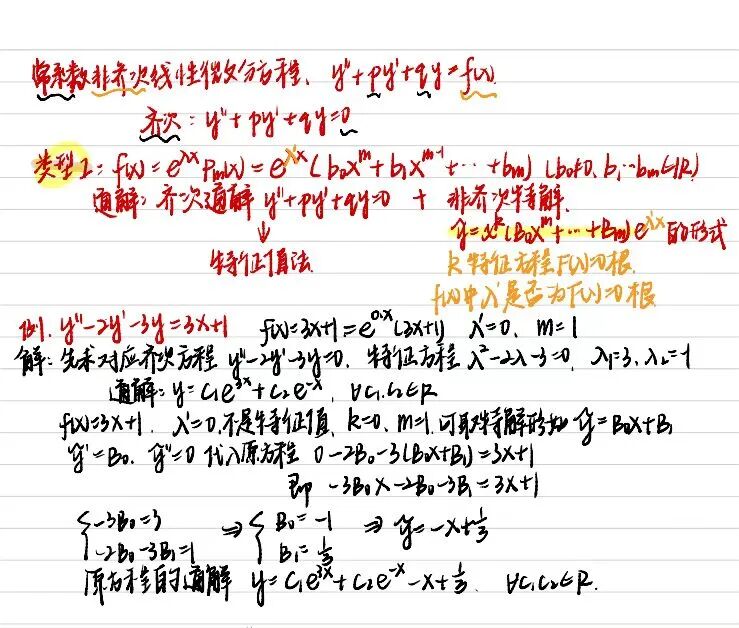 常系数非齐次线性微分方程. y''+py'+qy=f(x)
齐次: y''+py'+qy=0
类型1: f(x)=e^{λx}Pm(x)=e^{λ'x}(b₀x^m+b₁x^{m-1}+···+bm) (b₀≠0, b₁···bm∈R)
通解: 齐次通解 y''+py'+qy=0 + 非齐次特解.
↓ ỹ=x^k(B₀x^m+···+Bm)e^{λ'x}的形式
特征值法 k 特征方程F(λ)=0根.
f(x)中λ'是否为F(λ)=0根
例1. y''-2y'-3y=3x+1 f(x)=3x+1=e^{0·x}(3x+1) λ'=0, m=1
解: 先求对应齐次方程 y''-2y'-3y=0, 特征方程 λ²-2λ-3=0, λ₁=3, λ₂=-1
通解: y=C₁e^{3x}+C₂e^{-x}, ∀C₁,C₂∈R
f(x)=3x+1, λ'=0, 不是特征值, k=0, m=1, 可取特解形如 ỹ=B₀x+B₁
ỹ'=B₀, ỹ''=0 代入原方程 0-2B₀-3(B₀x+B₁)=3x+1
即 -3B₀x-2B₀-3B₁=3x+1
{-3B₀=3 ⇒ {B₀=-1 ⇒ ỹ=-x+1/3
-2B₀-3B₁=1 B₁=1/3
原方程的通解 y=C₁e^{3x}+C₂e^{-x}-x+1/3, ∀C₁,C₂∈R.